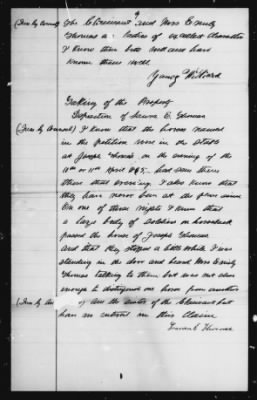 9
(Ques by Counsel) The Claimant and Mrs Emily
Thomas a ladies of excellent character
I know them both well and have
known them well.
Yancy Willard
Taking of the
Deposition of E. Thomas
(Ques by Counsel) I know that the horses named
in the petition were in the stable
at Joseph Thomas, on the evening of the
10th or 11th April 1865. had seen them
there that evening. I also know that
they have never been at the place since
On one of those nights I know that
a large body of soldiers on horseback
passed the house of Joseph Thomas
and that they stopped a little while I was
standing in the door and heard Mrs Emily
Thomas talking to them but was not close
enough to distinguish one horse from another
(Ques by am the sister of the Claimant but
have no interest in this Claim
E Thomas